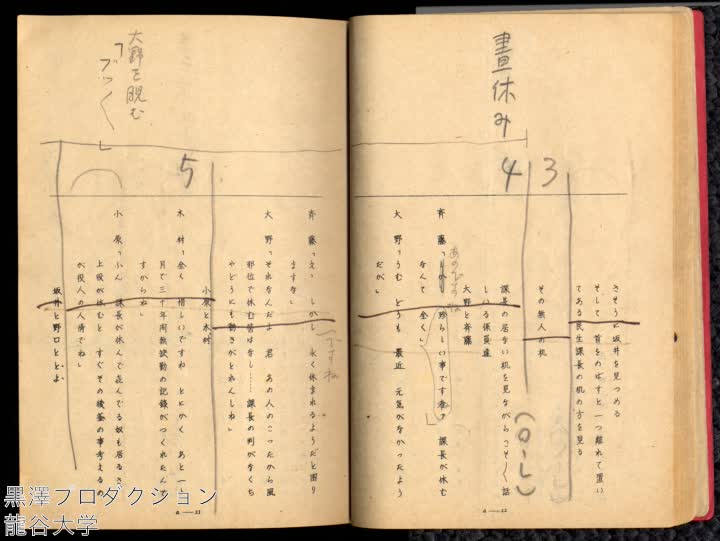 晝休み
3
4
さそうに坂井を見つめる
そして 首をのばすと一つ離れて置い
てある民生課長の机の方を見る
その無人の机
(O・L)
課長の居ない机を見ながらこそ〱話
している係員達
大野と斉藤
斉藤「しかし 珍らしい事ですな 課長が休む
なんて 全く」
大野「うむ どうも 最近 元気がなかったよう
だが」
a—22
大野を睨む
「ブツ〱」
5
斉藤「えゝ しかし 永く休まれるようだと困り
ますな」
ですね
大野「それなんだよ 君 あの人のこつたから風
邪位で休む筈はなし……課長の判がなくち
やどうにも動きがとれんしね」
小原と木村
木村「全く 惜しいですね とにかく あと一ト
月で三十年間無欠勤の記録がつくれたんで
すからね」
小原「ふん 課長が休んで喜んでる奴も居るさ
上役が休むと すぐその後釜の事考えるの
が役人の人情でね」
坂井と野口とどよ
a—23
黒澤プロダクション
龍谷大学